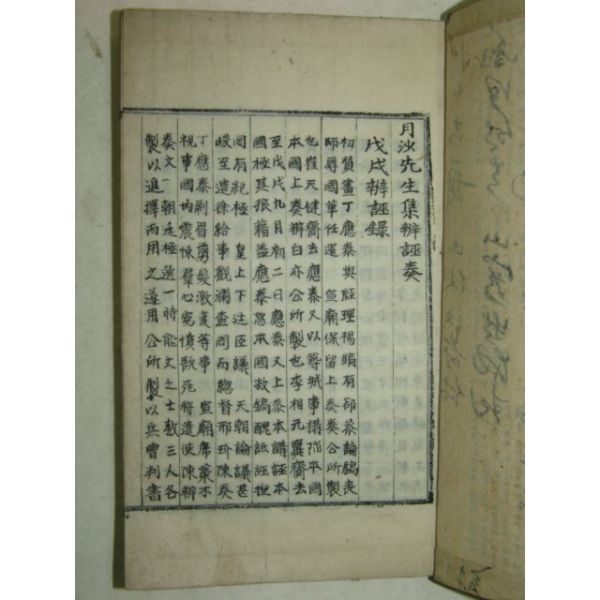 月沙先生集辨誣奏
戊戌辨誣錄
初贊畫丁應泰與經理楊鎬有郤叅論鎬喪
師辱國華任還 宣廟保留上奏奏公所製
也崔天健齎去應泰又以築城事搆陷本國
本國上奏辨白亦公所製也李相元翼齎去
至戊戌九月初二日應泰又上叅本講誣本
國極其狠藉盖應泰怒本國救鎬醜詆誣
罔有紀極 皇上下廷臣議 天朝論議甚
峻至遣徐給事觀瀾查同而總督邢玠陳奏
丁應泰剃眉剪髮激變等事 宣廟席藁不
視事國內震悚羣心寃憤欲死將遣使陳辨
奏文一朝廷極選一時能文之士數三人各
製以進擇而用之遂用公所製以兵曹判書